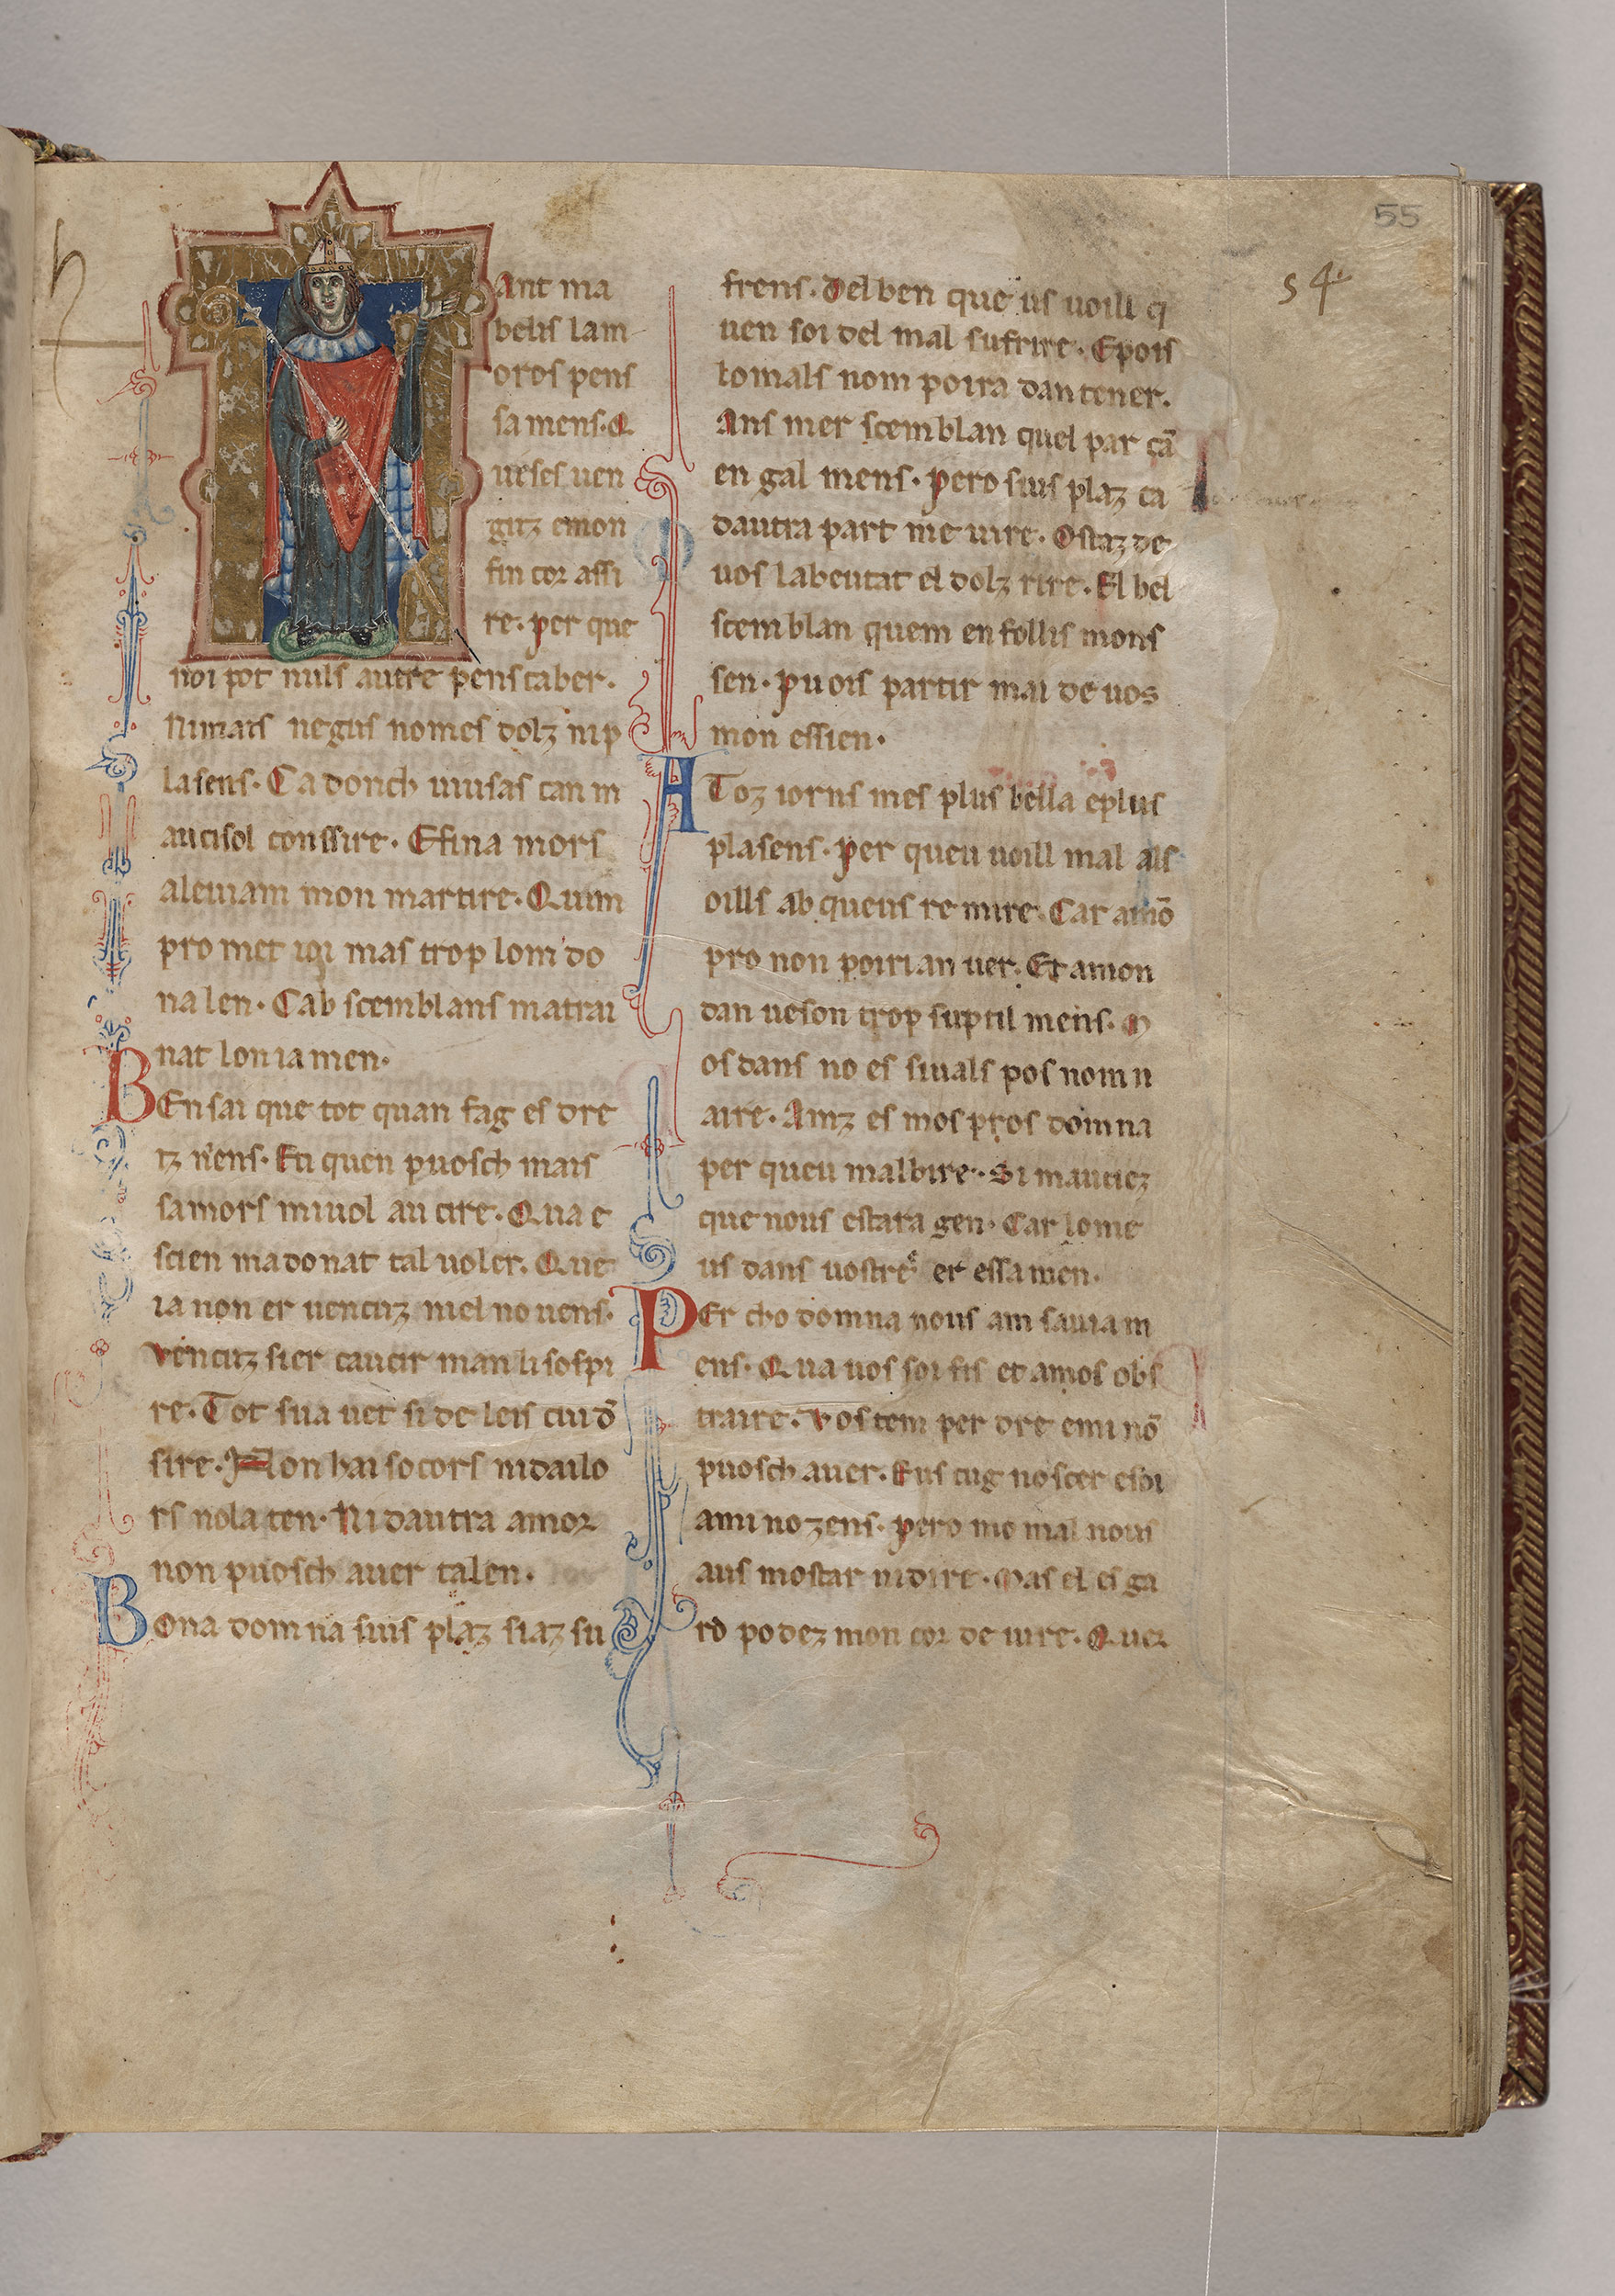 55
s 4
Ant ma
bels lam
oros pens
samens. Q
ueses uen
guz emon
fin cor assi
re. per que
noi pot nuls autre penscaber.
Nimais negus nomes dolz nip
lasens. Ca donch uiusas can m
aucisol conssire. Efina mors
aleuiam mon martire. Quim
promet ioi mas trop lom do
na len. Cab scemblans matrai
nat loniamen.
BEnsai que tot quan fag es dre
iz niens. Eti quen puosch mais
samors miuol aucire. Qua e
scien madonat tal uoler. Que
ia non er uencuz niel no uens.
Vencuz si er caucir man li sospi
re. Tot sua uet si de leis cui dō
sire. Non hai socors nidailo
rs nola ten. Ni dautra amor
non puosch auer talen.
BOna domna suis plaz siaz su
frens. Delben que us uoill q
uen soi del mal sufrire. Epois
lomals nom poira dan tener.
Ans mer scemblan quel par cā
engal mens. pero sius plaz ca
dautra part me uire. Ostaz de
uos labeutat el dolz rire. El bel
scemblan quem enfollis mons
sen. puois partir mai de uos
mon essien.
AToz iorns mes plus bella eplus
plasens. per queu uoill mal als
oills ab queus remire. Car amō
pro non poirian uer. Et amon
dan ueson trop suptil mens. M
os dans no es siuals pos nomn
aire. Ainz es mos pros domna
per queu malbire. Si mauciez
que nous estara gen. Car lo me
us dans uostre er essamen.
PEr cho domna nous am sauiam
ens. Qua uos soi fis et amos obs
traire. Vos tem per dre emi nō
puosch auer. Eus cug noscer esoi
ami nozens. pero mo mal nous
aus mostar nidire. Mas el esga
rd podez mon cor de uire. Quer